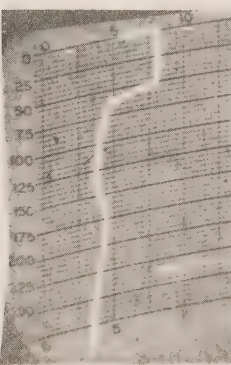 0 5 10
0
25
50
75
100
125
150
175
200
25
5